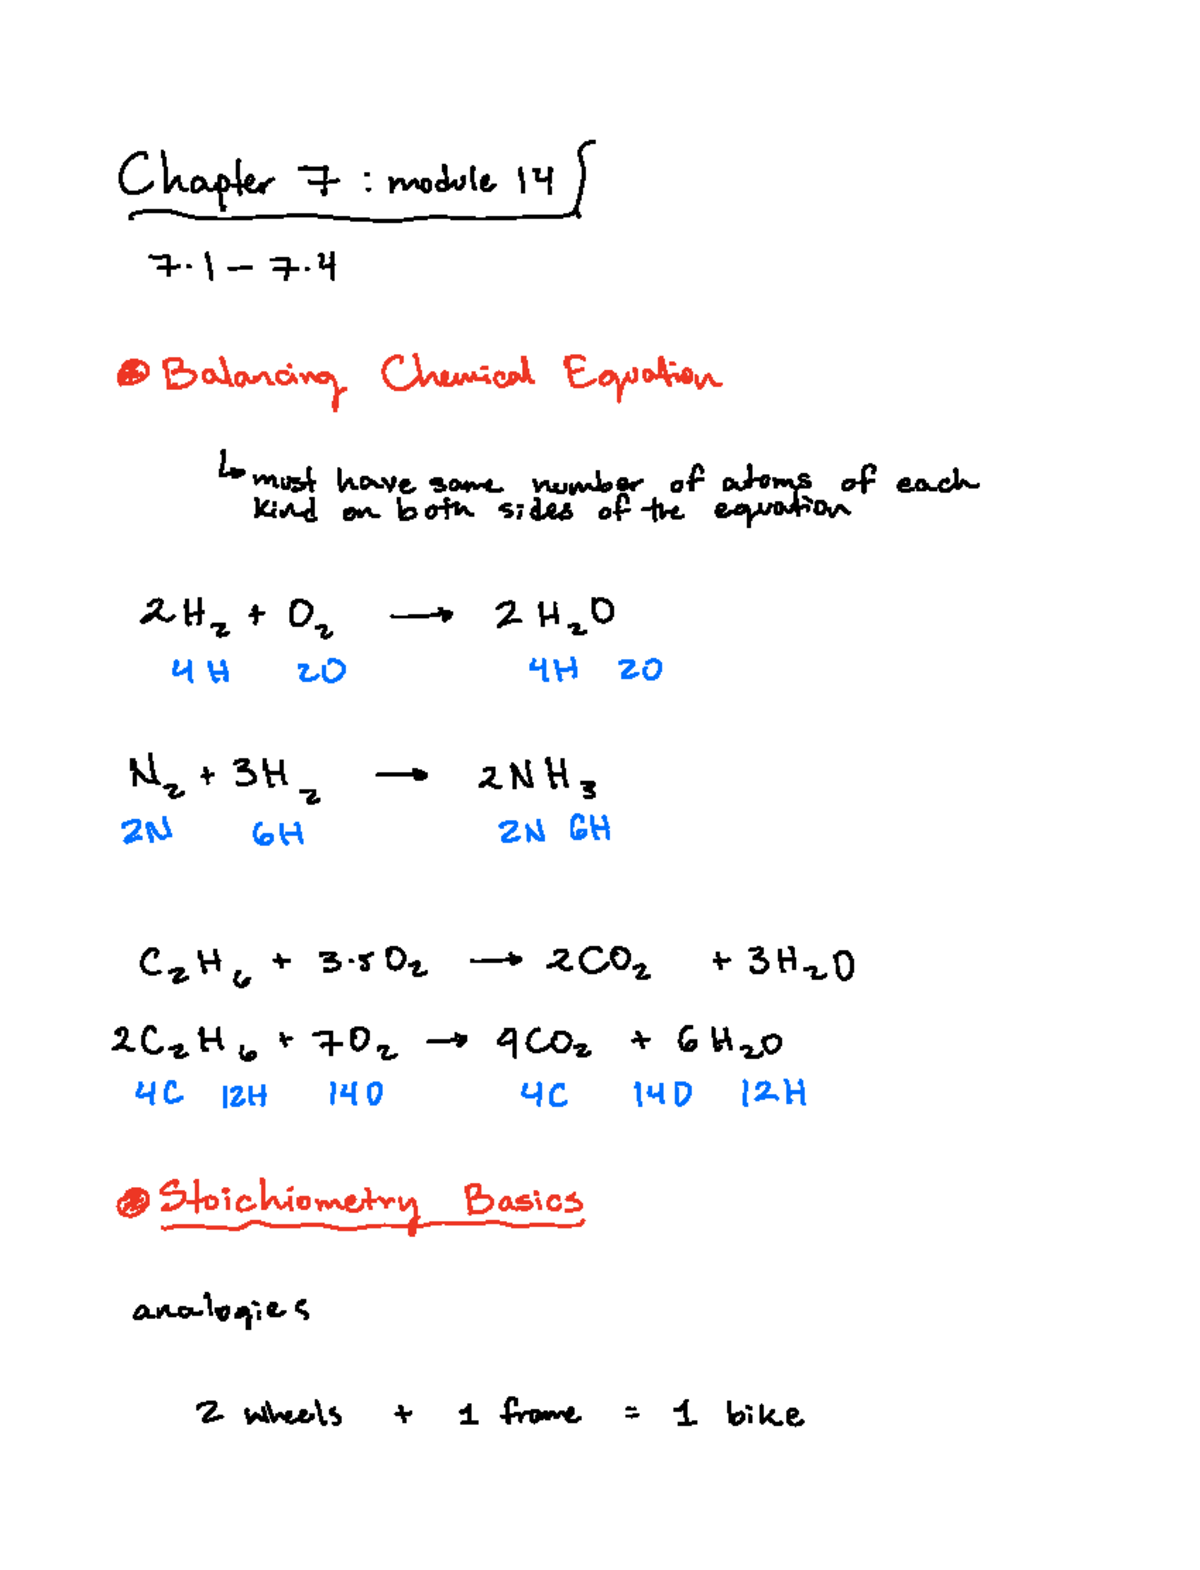 Chapter 7 : module 14
7.1 - 7.4
Balancing Chemical Equation
↳ must have same number of atoms of each
kind on both sides of the equation
2H₂ + O₂ → 2H₂O
4H 2O 4H 2O
N₂ + 3H₂ → 2NH₃
2N 6H 2N 6H
C₂H₆ + 3.5O₂ → 2CO₂ + 3H₂O
2C₂H₆ + 7O₂ → 4CO₂ + 6H₂O
4C 12H 14O 4C 14O 12H
Stoichiometry Basics
analogies
2 wheels + 1 frame = 1 bike